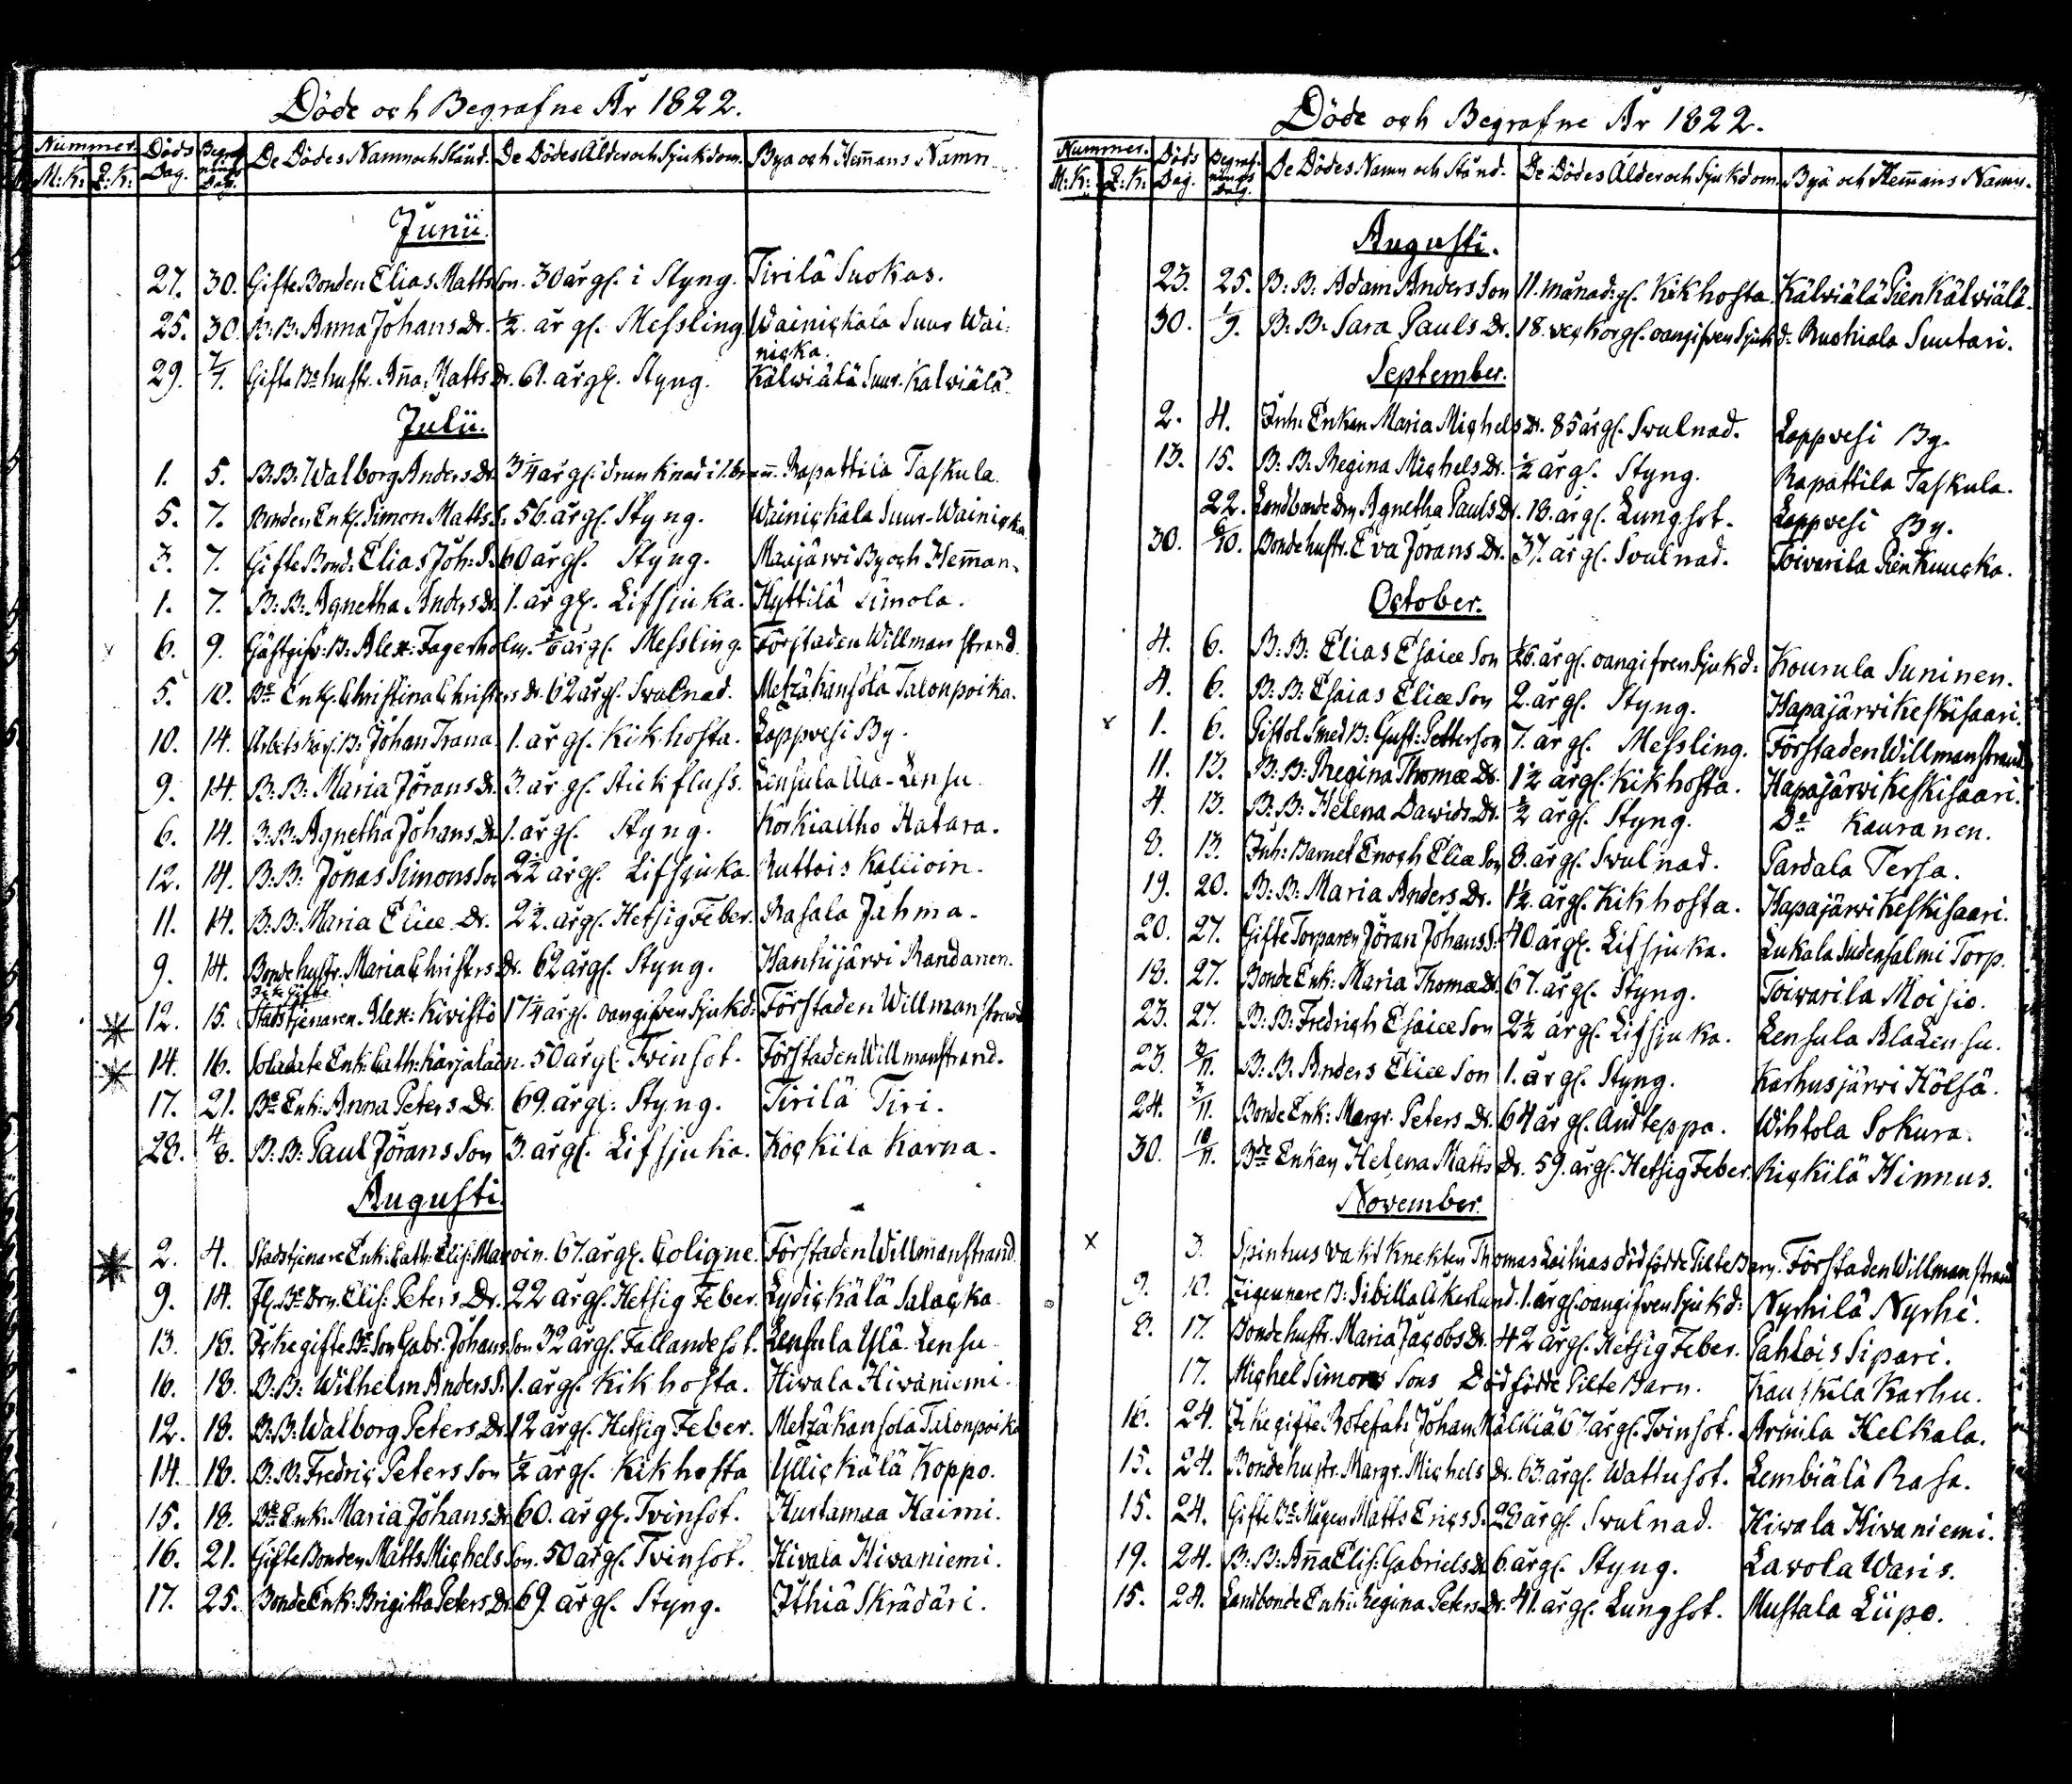 Döde och Begrafne År 1822.
Nummer. Döds Dag. Begraf nings Dag. De Dödes Namn och Stånd. De Dödes Ålder och Sjukdom. Bya och Hem̄ans Namn.
M: K: Q: K:
Junii.
27. 30. Gifte Bonden Elias Matts Son. 30 år gl. i Styng. Tirilä Suokas.
25. 30. B: B: Anna Johans Dr. ½ år gl. Messling. Wainickala Suur Wai:
nicka.
29. 7/7. Gifta Be hustr. An̄a Matts Dr. 61. år gl. Styng. Kälwiälä Suur-Kälwiälä
Julii.
1. 5. B: B: Walborg Anders Dr. 3¼ år gl. drunknad i 1. br Rapattila Taskula.
5. 7. Bonden Enkl. Simon Matts S. 56. år gl. Styng. Wainickala Suur-Wainicka
3. 7. Gifte Bond. Elias Joh: S. 60 år gl. Styng. Maijärwi By och Hem̄an.
1. 7. B: B: Agnetha Anders Dr. 1. år gl. Lifsjuka. Hyttilä Simola.
6. 9. Gästgifv: B: Alex: Fagerholm. år gl. Messling. Förstaden Willmanstrand.
5. 10. Be Enk. Christina Christers Dr. 62 år gl. Svulnad. Metzäkansola Talonpoika.
10. 14. Arbets Karl. B: Johan Trana 1. år gl. Kikhosta. Lappvesi By.
9. 14. B: B: Maria Jörans Dr. 3. år gl. Stickfluss. Lensula Ala-Lensu.
6. 14. B: B: Agnetha Johans Dr. 1. år gl. Styng. Korkiailho Hatara.
12. 14. B: B: Jonas Simons Son 2½ år gl. Lifsjuka. Ruttois Kallioin.
11. 14. B: B: Maria Eliæ Dr. 2½. år gl. Hetsig Feber. Rasala Juhma.
9. 14. Bonde hustr. Maria Christers Dr. 62 år gl. Styng. Hanhijärvi Randanen.
Icke Gifte
12. 15. Stadstjenaren Alex: Kivistö 17¼ år gl. oangifven Sjukd: Förstaden Willmanstrand
14. 16. Soladate Enk: Cath: Karjalain. 50 år gl. Tvinsot. Förstaden Willmanstrand.
17. 21. Be Enk: Anna Peters Dr. 69. år gl: Styng. Tirilä Tiri.
28. 4/8. B: B: Paul Jörans Son 3. år gl. Lifsjuka. Kockila Karna.
Augusti.
2. 4. Stadstjenare Enk: Cath: Elis: Maxoin. 67. år gl. Colique. Förstaden Willmanstrand.
9. 14. Fl. Be Drn. Elis: Peters Dr. 22 år gl. Hetsig Feber. Lydickälä Salacka.
13. 18. Icke gifte Be Son Gabr. Johans Son 32 år gl. Fallandesot. Lensula Ylä-Lensu.
16. 18. B: B: Wilhelm Anders S. 1. år gl. Kikhosta. Hivala Hivaniemi.
12. 18. B: B: Walborg Peters Dr. 12 år gl. Hetsig Feber. Metzäkansola Talonpoika
14. 18. B: B: Fredric Peters Son ½ år gl. Kikhosta Yllickälä Koppo.
15. 18. Be Enk: Maria Johans Dr. 60. år gl. Tvinsot. Hurtamaa Haimi.
16. 21. Gifte Bonden Matts Michels Son. 50 år gl. Tvinsot. Hivala Hivaniemi.
17. 25. Bonde Enk: Brigitta Peters Dr. 69. år gl. Styng. Ithiä Skrädäri.
Döde och Begrafne År 1822.
Nummer. Döds Dag. Begraf: nings Dag. De Dödes Namn och Stånd. De Dödes Ålder och Sjukdom. Bya och Hem̄ans Namn.
M: K: Q: K:
Augusti.
23. 25. B: B: Adam Anders Son 11. månad: gl. Kikhosta. Kälviälä Pien Kälviälä.
30. 1/9. B: B: Sara Pauls Dr. 18. veckor gl. oangifven Sjukd: Ruohiala Suutari.
September.
2. 4. Inh: Enkan Maria Michels Dr. 85 år gl. Svulnad. Lappvesi By.
13. 15. B: B: Regina Michels Dr. ½ år gl. Styng. Rapattila Taskula.
22. Landbonde Drn Agnetha Pauls Dr. 13. år gl. Lungsot. Lappvesi By.
30. 6/10. Bonde hustr. Eva Jörans Dr. 37. år gl. Svulnad. Toivarila Pien Kuucka.
October.
4. 6. B: B: Elias Esaiæ Son år gl. oangifven Sjukd: Kourula Suninen.
4. 6. B: B: Esaias Eliæ Son 2. år gl. Styng. Hapajärwi Keskisaari.
1. 6. Pistol Smed B: Gust: Petterson 7. år gl. Messling. Förstaden Willmanstrand
11. 13. B: B: Regina Thomæ Dr. 1½ år gl. Kikhosta. Hapajärwi Keskisaari.
4. 13. B: B: Helena Dawids Dr. ½ år gl. Styng. Do Kauranen.
8. 13. Inh: Barnet Enoch Eliæ Son 8. år gl. Svulnad. Pardala Tersa.
19. 20. B: B: Maria Anders Dr. 1½. år gl. Kikhosta. Hapajärwi Keskisaari.
20. 27. Gifte Torparen Jöran Johans S: 40. år gl. Lifsjuka. Lukala Sudensalmi Torp.
18. 27. Bonde Enk: Maria Thomæ Dr. 67. år gl. Styng. Toivarila Moisio.
23. 27. B: B: Fredrich Esaiæ Son 2½ år gl. Lifsjuka. Lensula Ala Lensu.
23. 3/11. B: B: Anders Eliæ Son 1. år gl. Styng. Karhusjärwi Hölsä.
24. 3/11. Bonde Enk: Margr. Peters Dr. 64 år gl. Andteppa. Wihtola Sokura.
30. 10/11. Bde Enkan Helena Matts Dr. 59. år gl. Hetsig Feber. Rickilä Hinnus.
November.
3. Spinhus vakt Knekten Thomas Laihias dödfödde Pilte Barn. Förstaden Willmanstrand
9. 10. Zigeunare B: Sibilla Åkerlund. 1. år gl. oangifven Sjukd: Nyrhilä Nyrhi.
8. 17. Bonde hustr. Maria Jacobs Dr. 42 år gl. Hetsig Feber. Pahtois Sipari.
17. Michel Simons Sons Dödfödde Pilte Barn. Kauskila Karhu.
16. 24. Icke gifte Rotefat: Johan Mälkiä 67. år gl. Tvinsot. Armila Helkala.
15. 24. Bonde hustr. Margr. Michels Dr. 63. år gl. Wattusot. Lembiälä Rasa.
15. 24. Gifte Be Mågen Matts Erics S. 26 år gl. Svulnad. Hiwala Hivaniemi.
19. 24. B: B: An̄a Elis: Gabriels Dr. 6. år gl. Styng. Lavola Waris.
15. 24. Landbonde Enk: Regina Peters Dr. 41. år gl. Lungsot. Mustala Liipo.